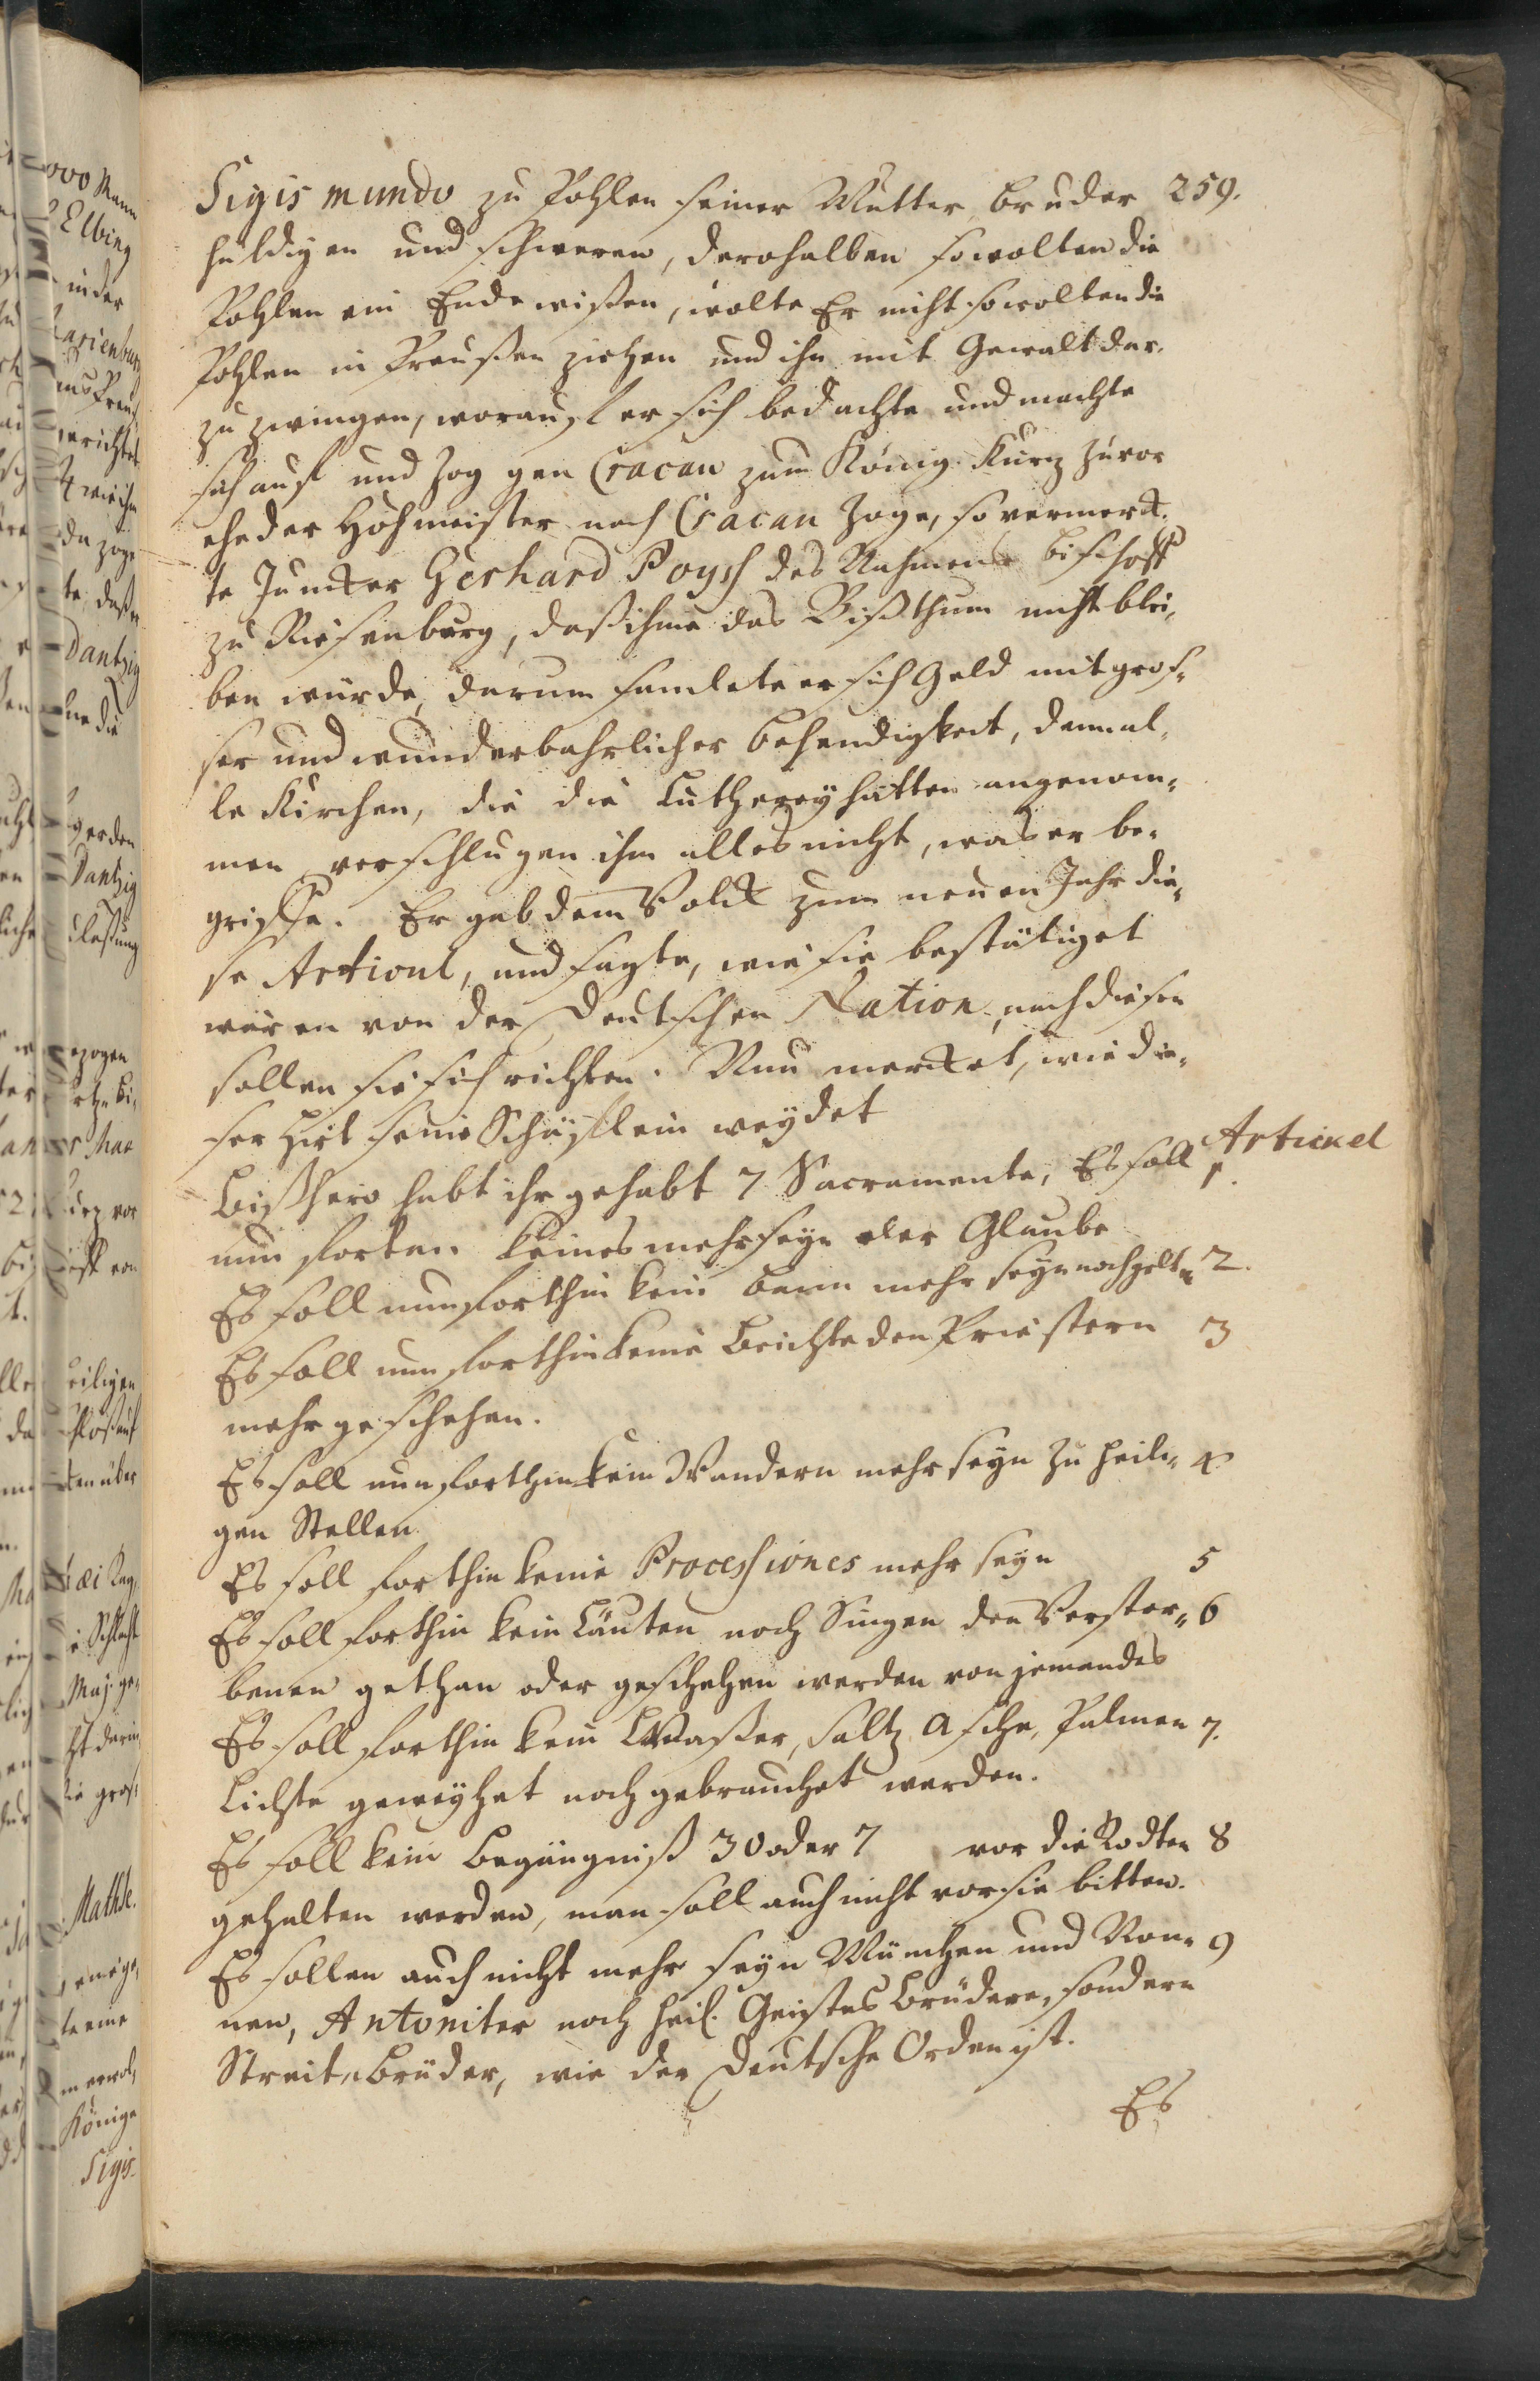 Sigismundo zu Pohlen seiner Mutter bruder 259.
huldigen und schweren, derohalben so wolten die
Pohlen ein Ende wißen, wolte Er nicht so wolten die
Pohlen in Preußen ziehen und ihn mit Gewalt dar-
zu zwingen, worauf er sich bedachte und machte
sich auf und zog gen Cracau zum König. Kurz zuvor
ehe der Hohmeister nach Cracau zoge, so vermerck-
te Juncker Gerhard Poysch des Nahmens bischoff
zu Riesenburg, daß ihme das Bißthum nicht blei-
ben würde, darum samlete er sich Geld mit gros-
ser und wunderbahrlicher behendigkeit, denn al-
le Kirchen, die die Lutherey hatten angenom-
men verschlugen ihm alles nicht, was er be-
griffe. Er gab dem Volck zum neuen Jahr die-
se Articul, und sagte, wie sie bestätiget
wären von der Deutschen Nation, nach diesen
sollen sie sich richten. Nun mercket, wie die-
ser Hirt seine Schäfflein weydet
Artickel
Bißhero habt ihr gehabt 7 Sacramente, Es soll 1.
nun fortan keines mehr seyn der Glaube
Es soll nun forthin kein bann mehr seyn noch gelten 2.
Es soll nun forthin keine Beichte den Priestern 3
mehr geschehen.
Es soll nun forthin kein Wandern mehr seyn zu heili- 4
gen Stellen
Es soll forthin keine Processiones mehr seyn 5
Es soll forthin kein Läuten noch Singen den Verstor- 6
benen gethan oder geschehen werden von jemandes
Es soll forthin kein Waßer, Saltz Asche, Palmen 7.
Lichte geweyhet noch gebrauchet werden.
Es soll kein Begängniß 30 oder 7 vor die Todten 8
gehalten werden, man soll auch nicht vor sie bitten.
Es sollen auch nicht mehr seyn München und Non- 9
nen, Antoniter noch heil. Geistes Brüdere, sondern
Streit-Brüder, wie der Deutsche Orden ist.
Es